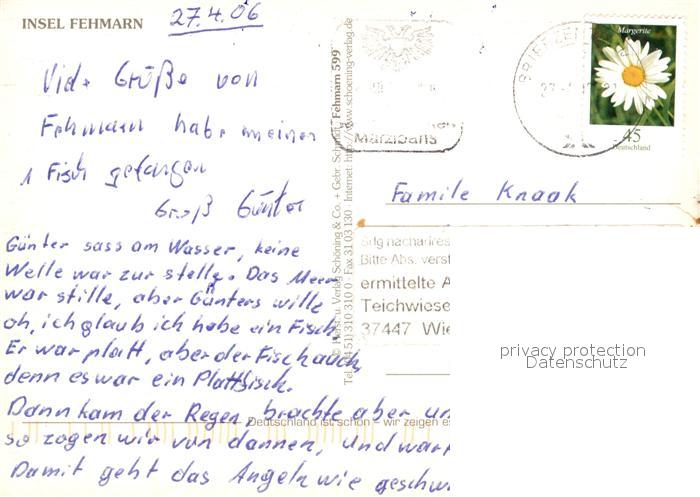 INSEL FEHMARN
27.4.06
Margerite
45
Deutschland
Vid. Grüße von
Fehmarn habe meinen
1 Fisch gefangen
Gruß Günter
Günter sass am Wasser, keine
Welle war zur stelle. Das Meer
war stille, aber Günters wille
oh, ich glaub ich habe ein Fisch.
Er war platt, aber der Fisch auch,
denn es war ein Plattfisch.
Dann kam der Regen, brachte aber
so zogen wir von dannen, und
Damit geht das Angeln wie
Deutschland ist schön - wir zeigen es
Verlag Schöning & Co. + Gebr. Schmidt
Fehmarn 599
Tel. 310 310 0 · Fax 31 03 130 · Internet: http://www.schoening-verlag.de
Marzipans
Familie Knaak
Bitte Abs.
ermittelte A
Teichwiese
37447 Wie
privacy protection
Datenschutz